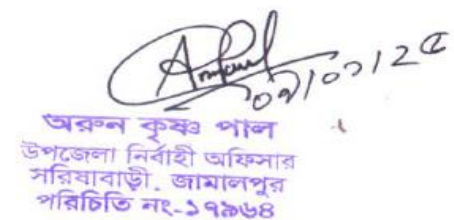 অরুন কৃষ্ণ পাল
উপজেলা নির্বাহী অফিসার
সরিষাবাড়ী, জামালপুর
পরিচিতি নং-১৭৯৬৪